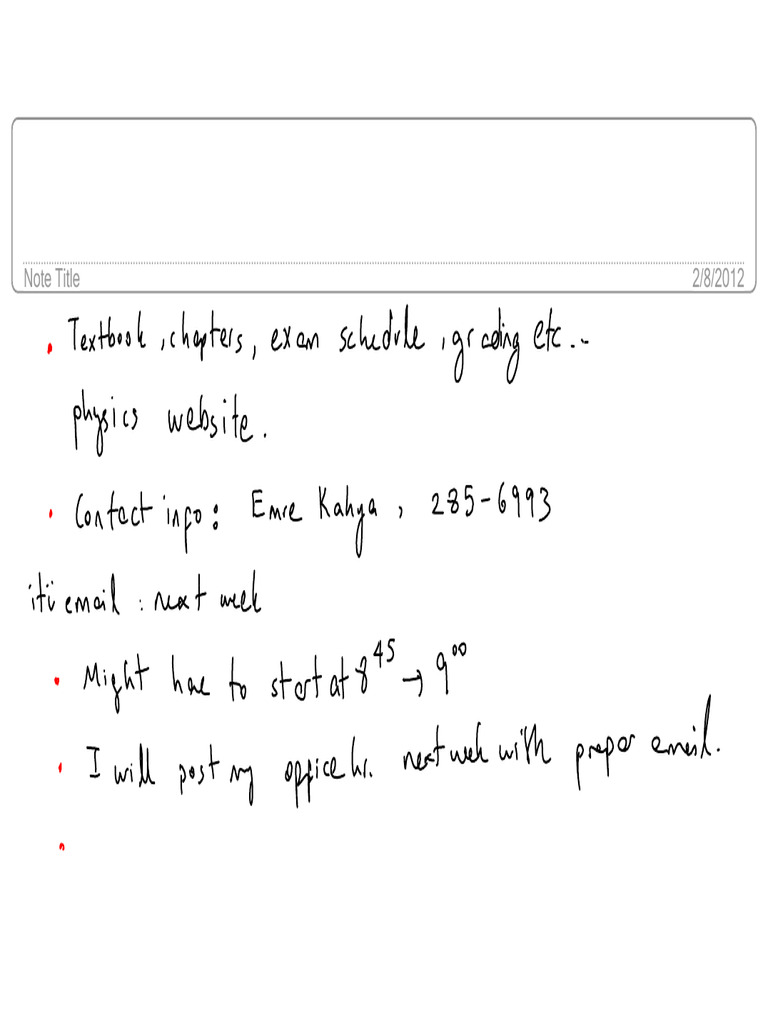 Note Title
2/8/2012
• Textbook, chapters, exam schedule, grading etc...
physics website.
• Contact info: Emre Kahya, 285-6993
itü email : next week
• Might have to start at 8⁴⁵ → 9⁰⁰
• I will post my office hr. next week with proper email.
•